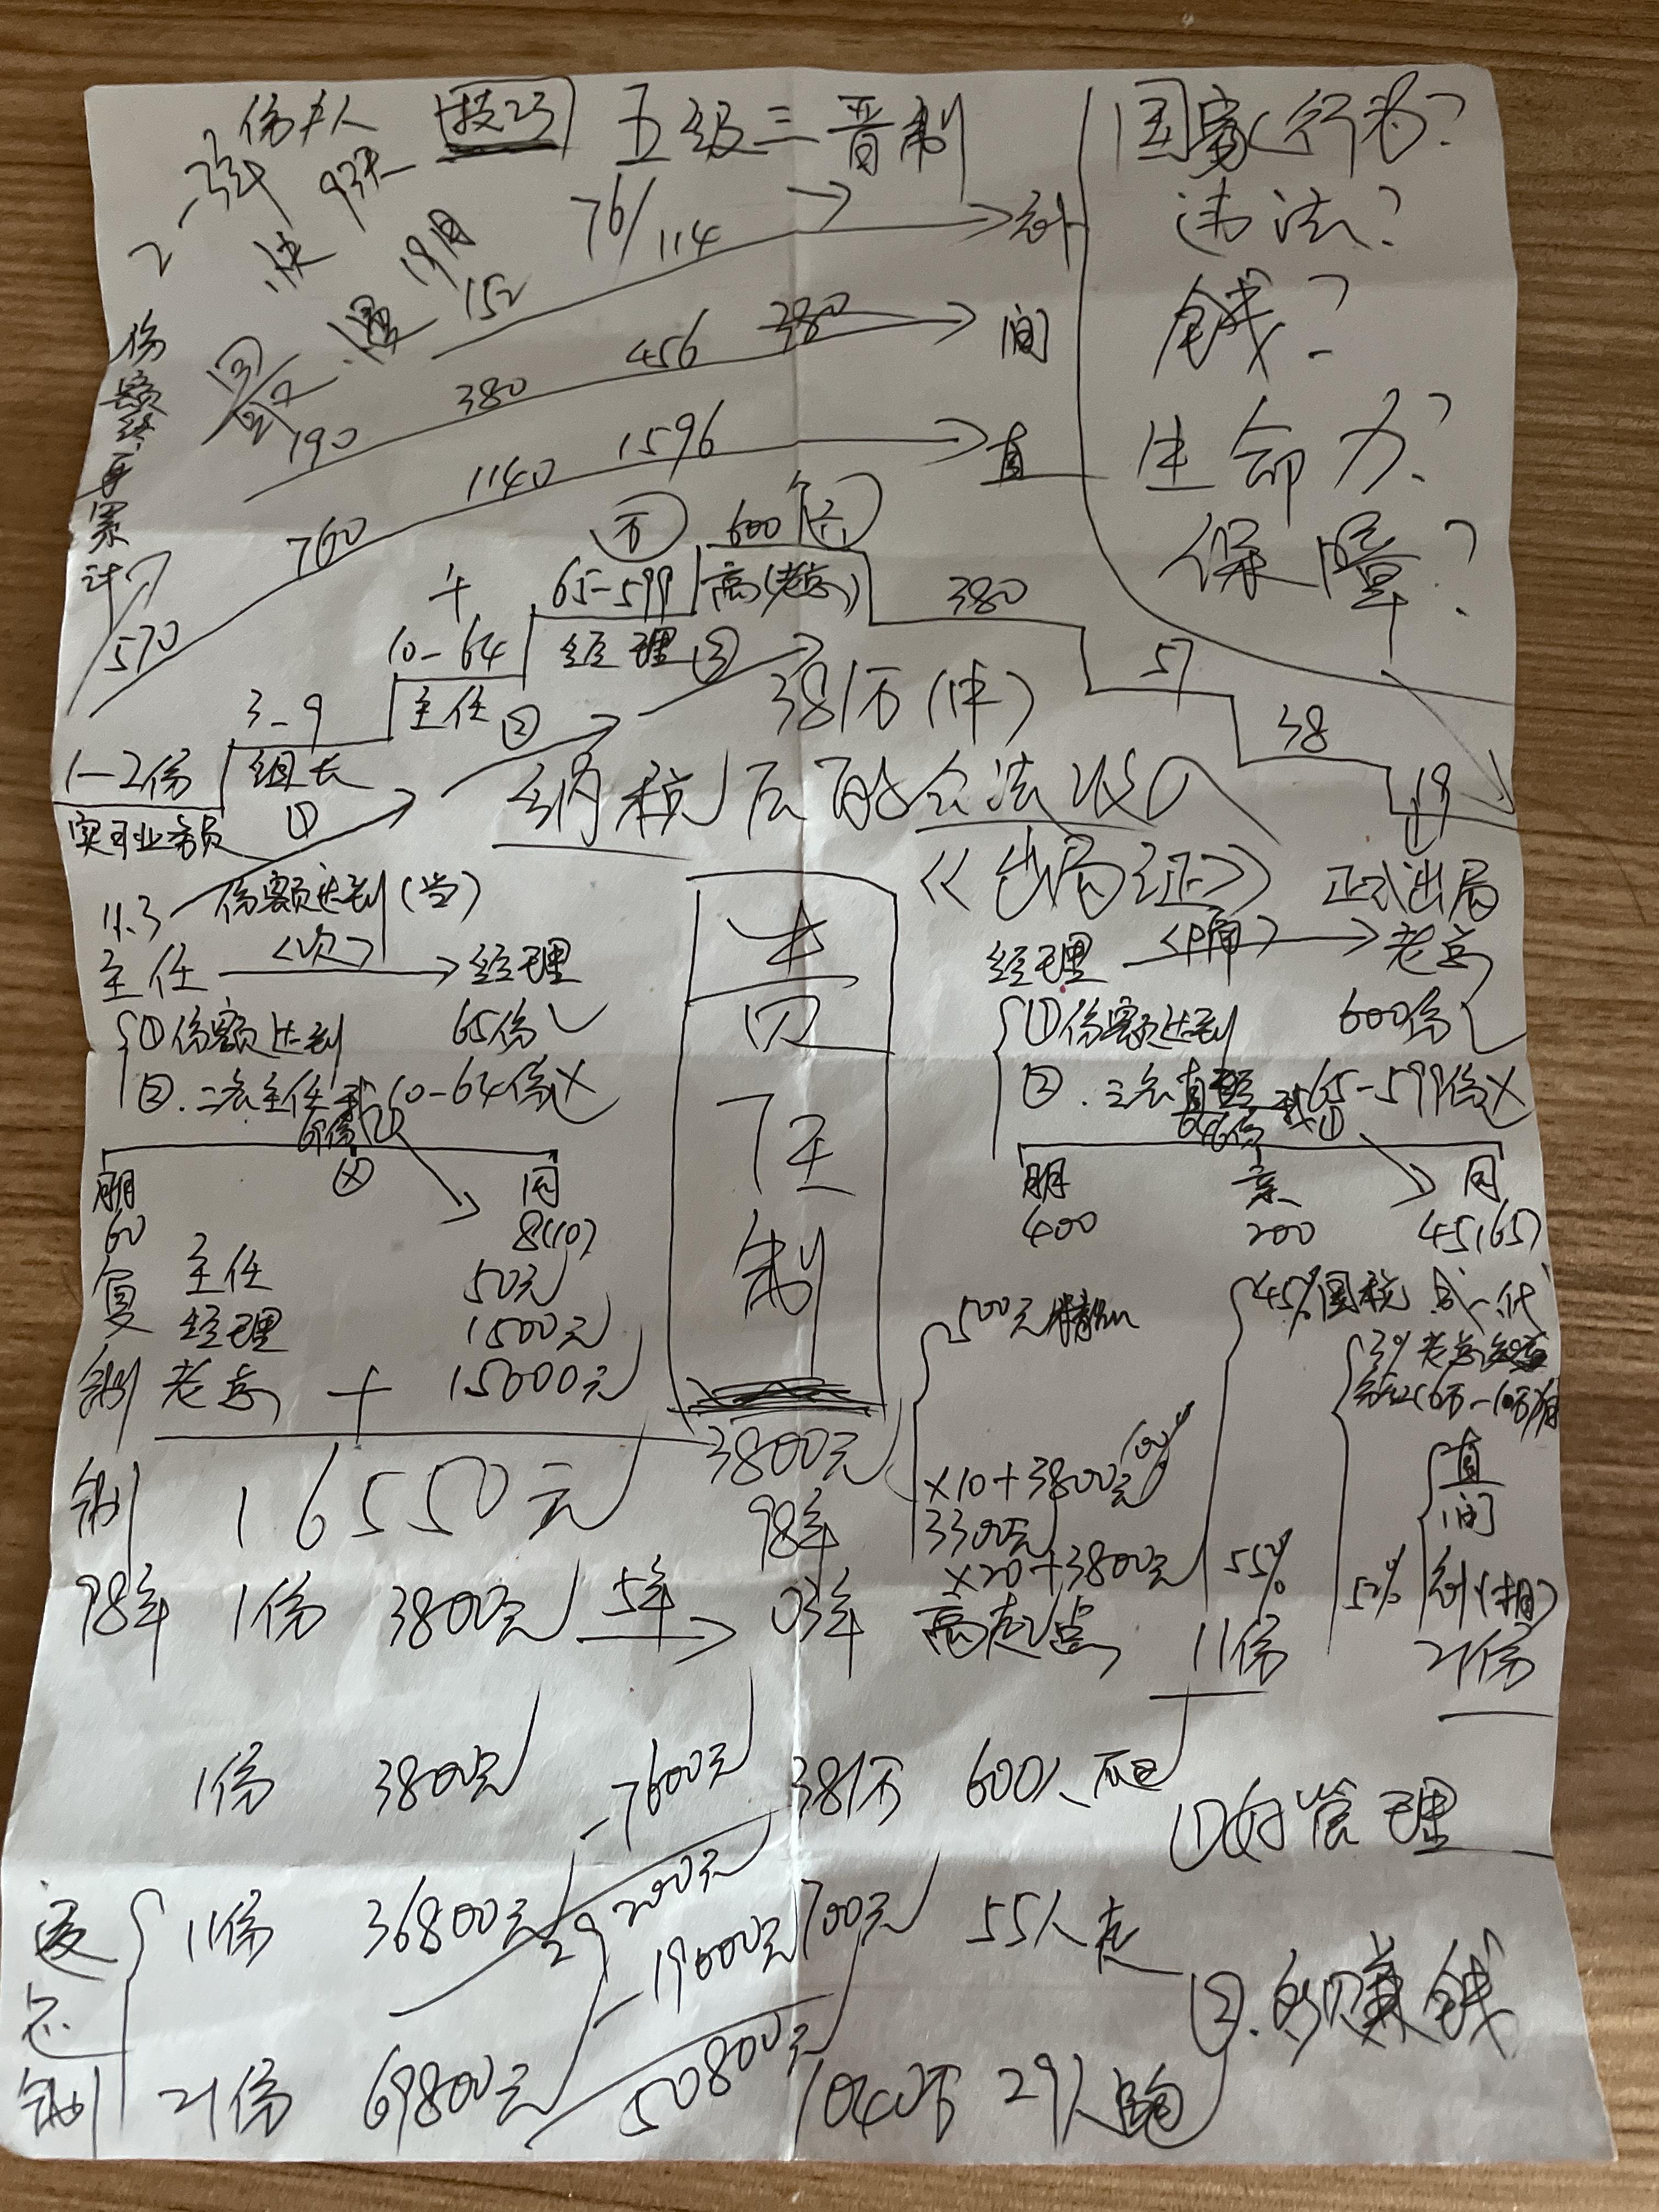 份 夫人 技巧 五级三晋制
2-3年 93天
国家行为?
违法?
钱?
生命力?
保障?
最快
最慢 19月
2
份额终身累计
152 76/114
190 380 456 380 间
760 1140 1596 直
570
1-2份
实习业务员
3-9
组长
①
10-64
主任 ②
65-599
经理 ③
600份
高(老总)
380
57
38
19
381万(体)
纳税后的合法收入
《出局证》 正式出局
份额达到(当)
主任 <次> 经理
①份额达到 65份
②. 二名主任 10-64份
朋 同
60 8(10)
责任制
经理 老总
①份额达到 600份
② 三名直 65-599份
朋 亲 同
400 200 45(65)
复制
主任 50元
经理 1500元
老总 + 15000元
制 16550元
3800元
98年
98年 1份 3800元 5年 03年
500元
×10+3800元
3300元
×20+3800元
高起点
45%国税
55%
3%老总
直
间
52%
11份 21份
1份 3800元 381万 600人
-7600元
返还制
11份 36800元 29200元 700元 55人走
-19000元
21份 69800元 50800元 1040万 29人跑
①好管理
②.好赚钱